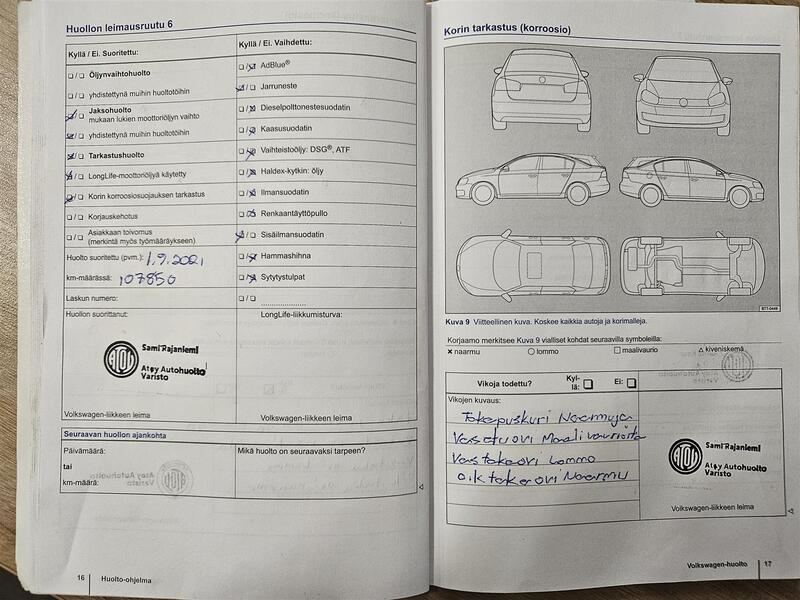 Huollon leimausruutu 6
Kyllä / Ei. Suoritettu:
❏ / ❏ Öljynvaihtohuolto
❏ / ❏ yhdistettynä muihin huoltotöihin
❏ / ❏ Jaksohuolto
mukaan lukien moottoriöljyn vaihto
❏ / ❏ yhdistettynä muihin huoltotöihin
❏ / ❏ Tarkastushuolto
❏ / ❏ LongLife-moottoriöljyä käytetty
❏ / ❏ Korin korroosiosuojauksen tarkastus
❏ / ❏ Korjauskehotus
❏ / ❏ Asiakkaan toivomus
(merkintä myös työmääräykseen)
Huolto suoritettu (pvm.): 1.9.2021
km-määrässä: 107850
Laskun numero:
Kyllä / Ei. Vaihdettu:
❏ / ❏ AdBlue®
❏ / ❏ Jarruneste
❏ / ❏ Dieselpolttonestesuodatin
❏ / ❏ Kaasusuodatin
❏ / ❏ Vaihteistoöljy: DSG®, ATF
❏ / ❏ Haldex-kytkin: öljy
❏ / ❏ Ilmansuodatin
❏ / ❏ Renkaantäyttöpullo
❏ / ❏ Sisäilmansuodatin
❏ / ❏ Hammashihna
❏ / ❏ Sytytystulpat
❏ / ❏ ....................
Huollon suorittanut:
Sami Rajaniemi
Atoy Autohuolto
Varisto
Volkswagen-liikkeen leima
LongLife-liikkumisturva:
Volkswagen-liikkeen leima
Seuraavan huollon ajankohta
Päivämäärä:
tai
km-määrä:
Mikä huolto on seuraavaksi tarpeen?
16 Huolto-ohjelma
Korin tarkastus (korroosio)
B7T-0449
Kuva 9 Viitteellinen kuva. Koskee kaikkia autoja ja korimalleja.
Korjaamo merkitsee Kuva 9 vialliset kohdat seuraavilla symboleilla:
✕ naarmu ○ lommo □ maalivaurio △ kiveniskemä
Vikoja todettu? Kyl-
lä: ❏ Ei: ❏
Vikojen kuvaus:
Takapuskuri Naarmuja
Vasetuovi Maalivaurioita
Vas takaovi Lommo
oik takaovi Naarmu
Sami Rajaniemi
Atoy Autohuolto
Varisto
Volkswagen-liikkeen leima
Volkswagen-huolto 17